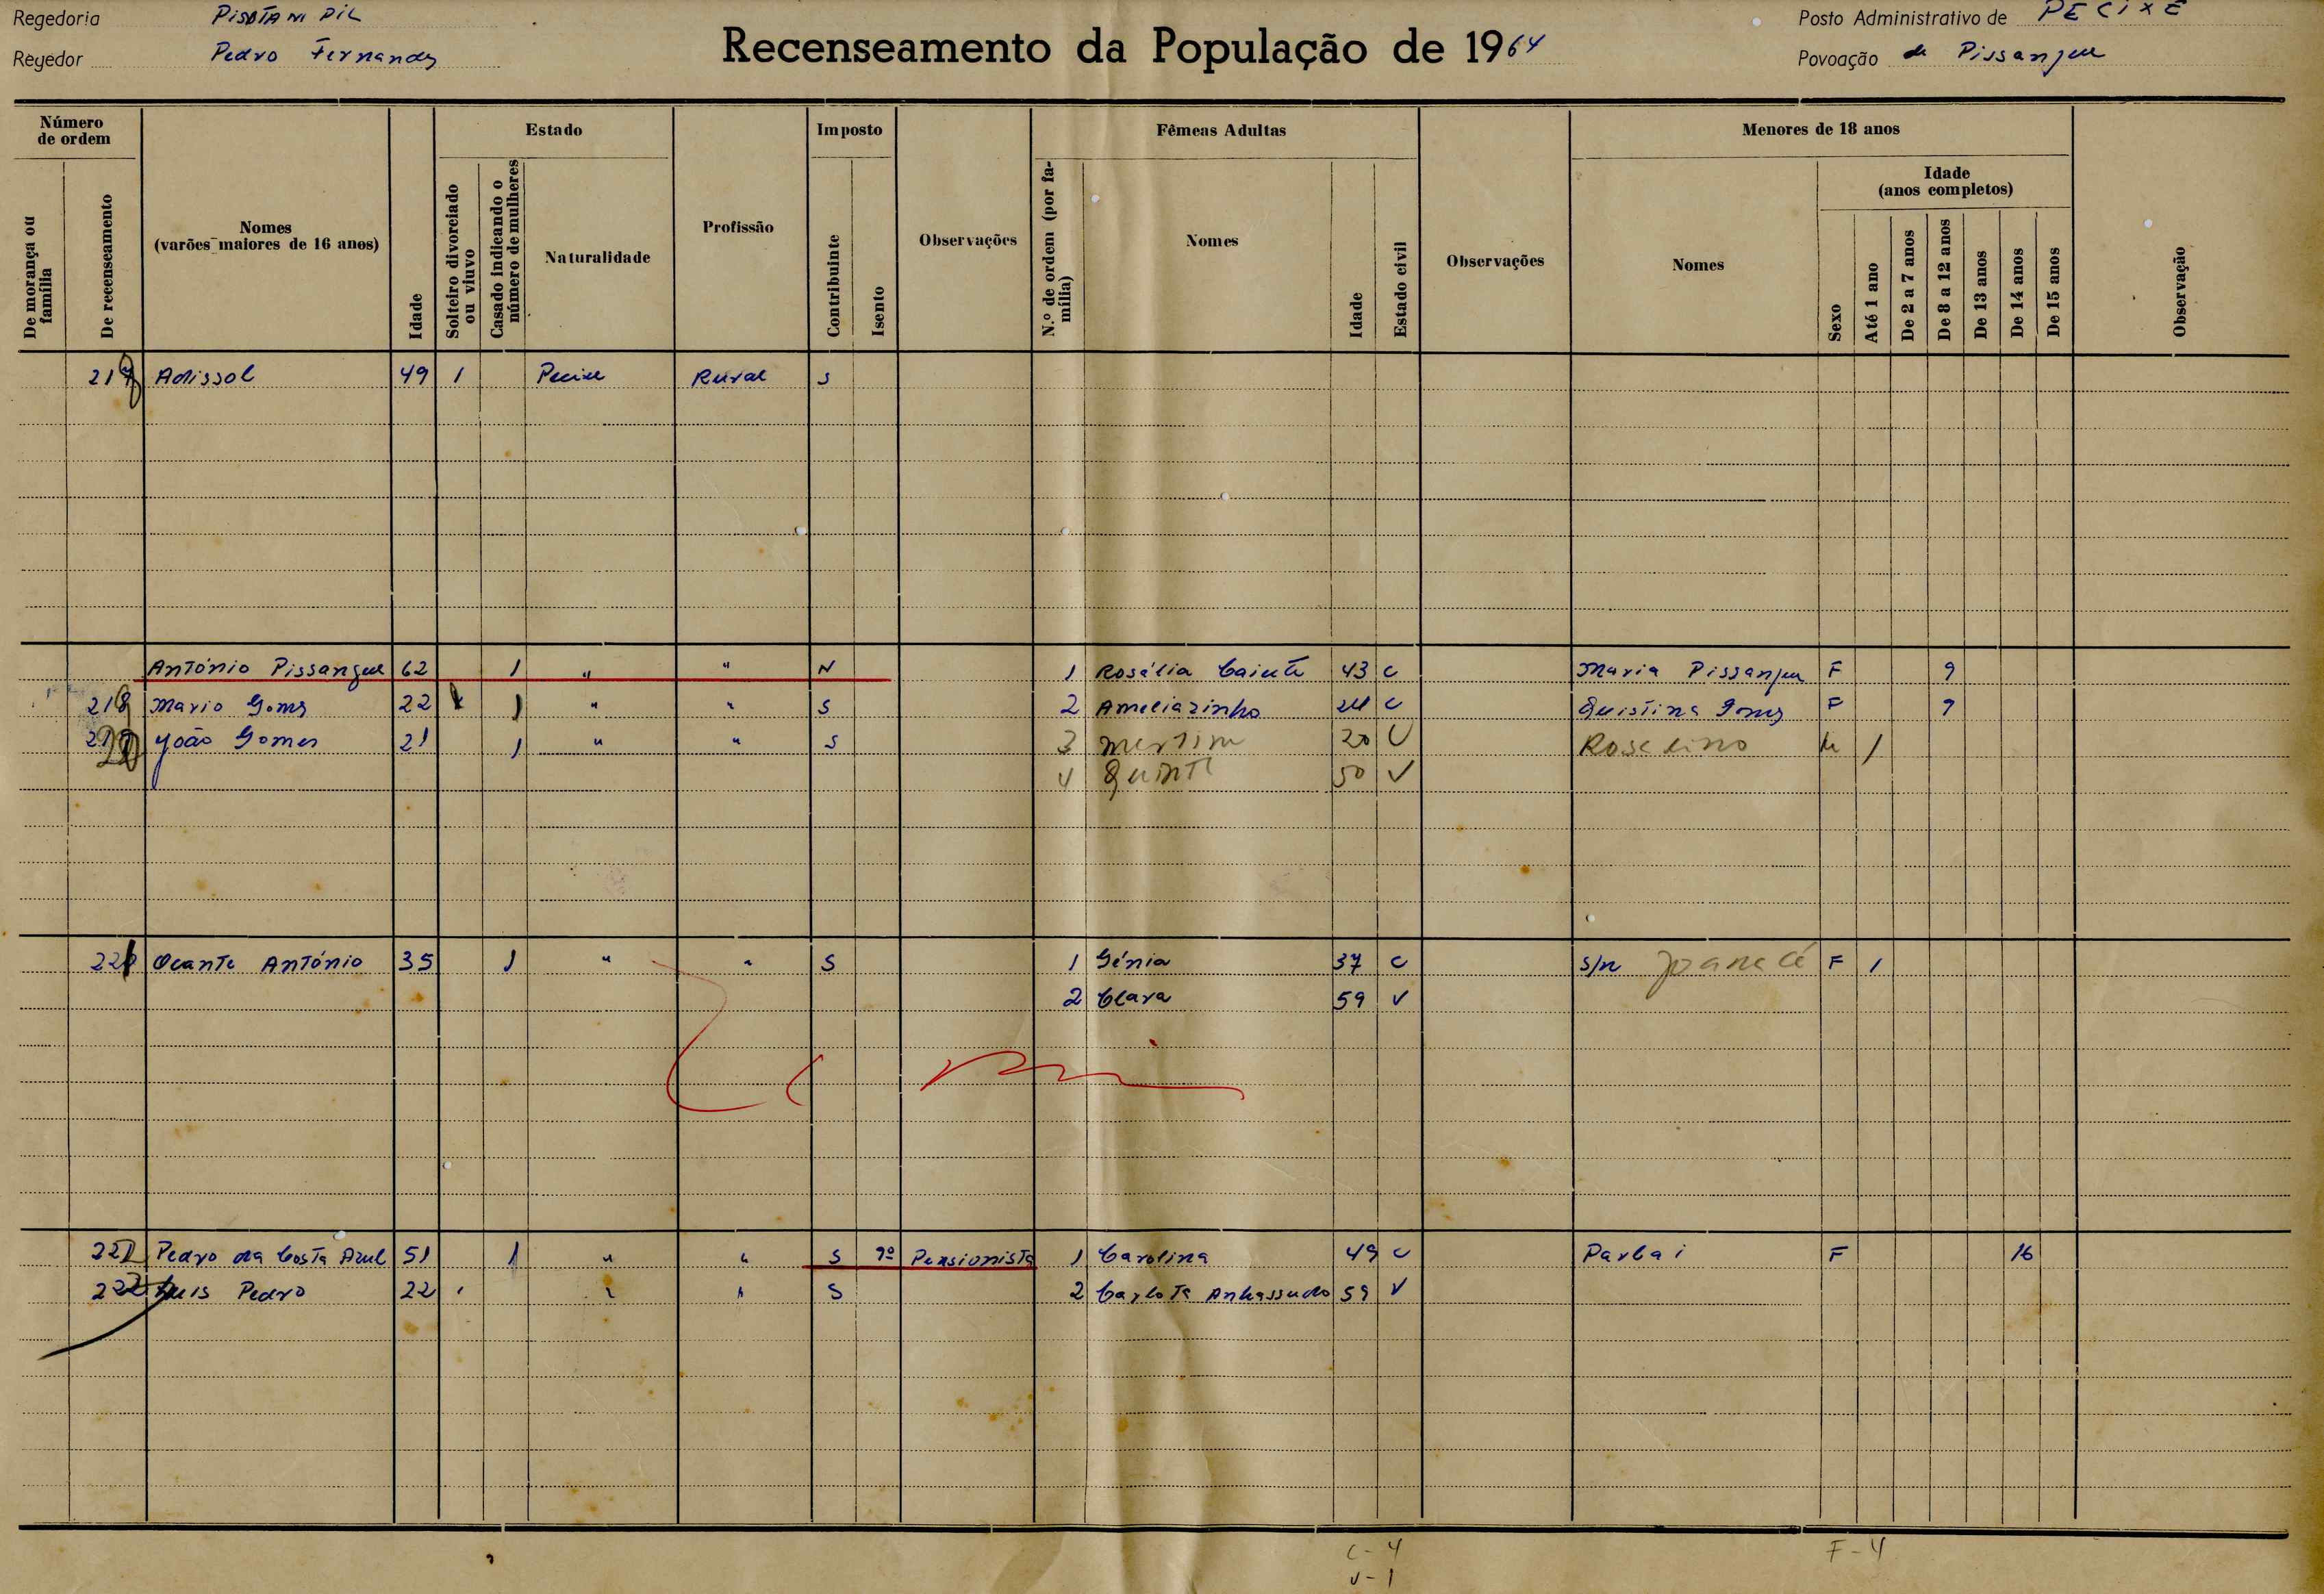 Regedoria PISOTAM PIL
Regedor Pedro Fernandes
Recenseamento da População de 1964
Posto Administrativo de PECIXE
Povoação de Pissangue
Número de ordem
De morança ou família
De recenseamento
Nomes (varões maiores de 16 anos)
Idade
Estado
Solteiro divorciado ou viuvo
Casado indicando o número de mulheres
Naturalidade
Profissão
Imposto
Contribuinte
Isento
Observações
Fêmeas Adultas
N.º de ordem (por família)
Nomes
Idade
Estado civil
Observações
Menores de 18 anos
Nomes
Sexo
Idade (anos completos)
Até 1 ano
De 2 a 7 anos
De 8 a 12 anos
De 13 anos
De 14 anos
De 15 anos
Observação
Adissol 49 1 Pecixe Rural S
António Pissangue 62 1 " " N 1 Rosália Caiute 43 C Maria Pissangue F 9
Mario Gomes 22 1 " " S 2 Ameliazinho 24 C Quistina Gomes F 9
João Gomes 21 1 " " S 3 20 C Roselino M 1
4 Quinte 50 V
221 Ocante António 35 1 " " S 1 Génia 37 C S/n F 1
2 Clara 59 V
Pedro da Costa Azul 51 1 " " S Pensionista 1 Carolina 49 C Parbai F 16
Luis Pedro 22 S 2 Carlota Anhassudo 59 V
C - 4
V - 1
F - 4